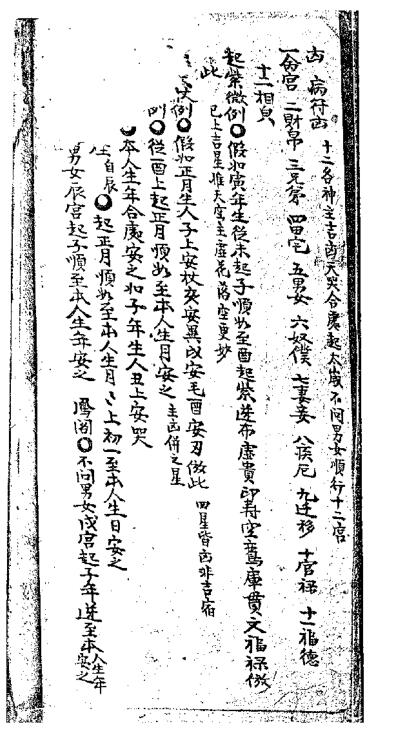 凶 病符凶 十二各神主吉凶天哭合處起太歲不問男女順行十二宮
一命宮 二財帛 三兄弟 四田宅 五男女 六奴僕 七妻妾 八疾厄 九迁移 十官祿 十一福德
十二相皃
起紫微例〇假如寅年生從未起子順數至酉起紫逆布虛貴印壽空鸞庫貫文福祿倣
此 已上吉星惟天空主虛花落空更妙
例〇假如正月生人子上安杖安異戌安毛酉安刃倣此 四星皆凶非吉宿
例〇從酉上起正月順數至本人生月安之 主凶併之星
本人生年合處安之如子年生人丑上安哭
自辰〇起正月順數至本人生月上初一至本人生日安之
男女辰宮起子順至本人生年安之 鳳閣〇不問男女戌宮起子年逆至本人生年安之